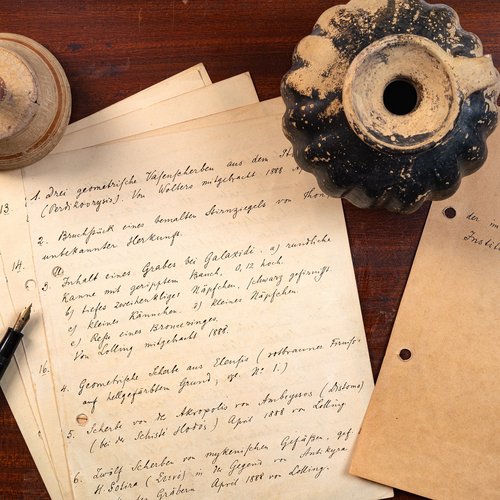 1. Drei geometrische Vasenscherben aus dem
(Perdikovrysis). Von Wolters mitgebracht 1888
2. Bruchstück eines bemalten Stirnziegels von Thon,
unbekannter Herkunft.
3. Inhalt eines Grabes bei Galaxidi. a) rundliche
Kanne mit geripptem Bauch, 0,12 hoch
b) tiefes zweihenkliges Näpfchen, schwarz gefirnißt.
c) kleines Kännchen. d) kleines Näpfchen
e) Reste eines Bronceringes.
Von Lolling mitgebracht 1888.
4. Geometrische Scherbe aus Eleusis (rotbrauner Firniss
auf hellgefärbtem Grund; vgl. No 1.)
5. Scherbe von der Akropolis von Ambryssos (Distomo)
(bei der Schisti Hodós) April 1888 von Lolling
6. Zwölf Scherben von mykenischen Gefäßen, gef.
H. Sotira in der Gegend von Antikyra
Gräbern April 1888 von Lolling.
13.
14.
16.
der
Instit